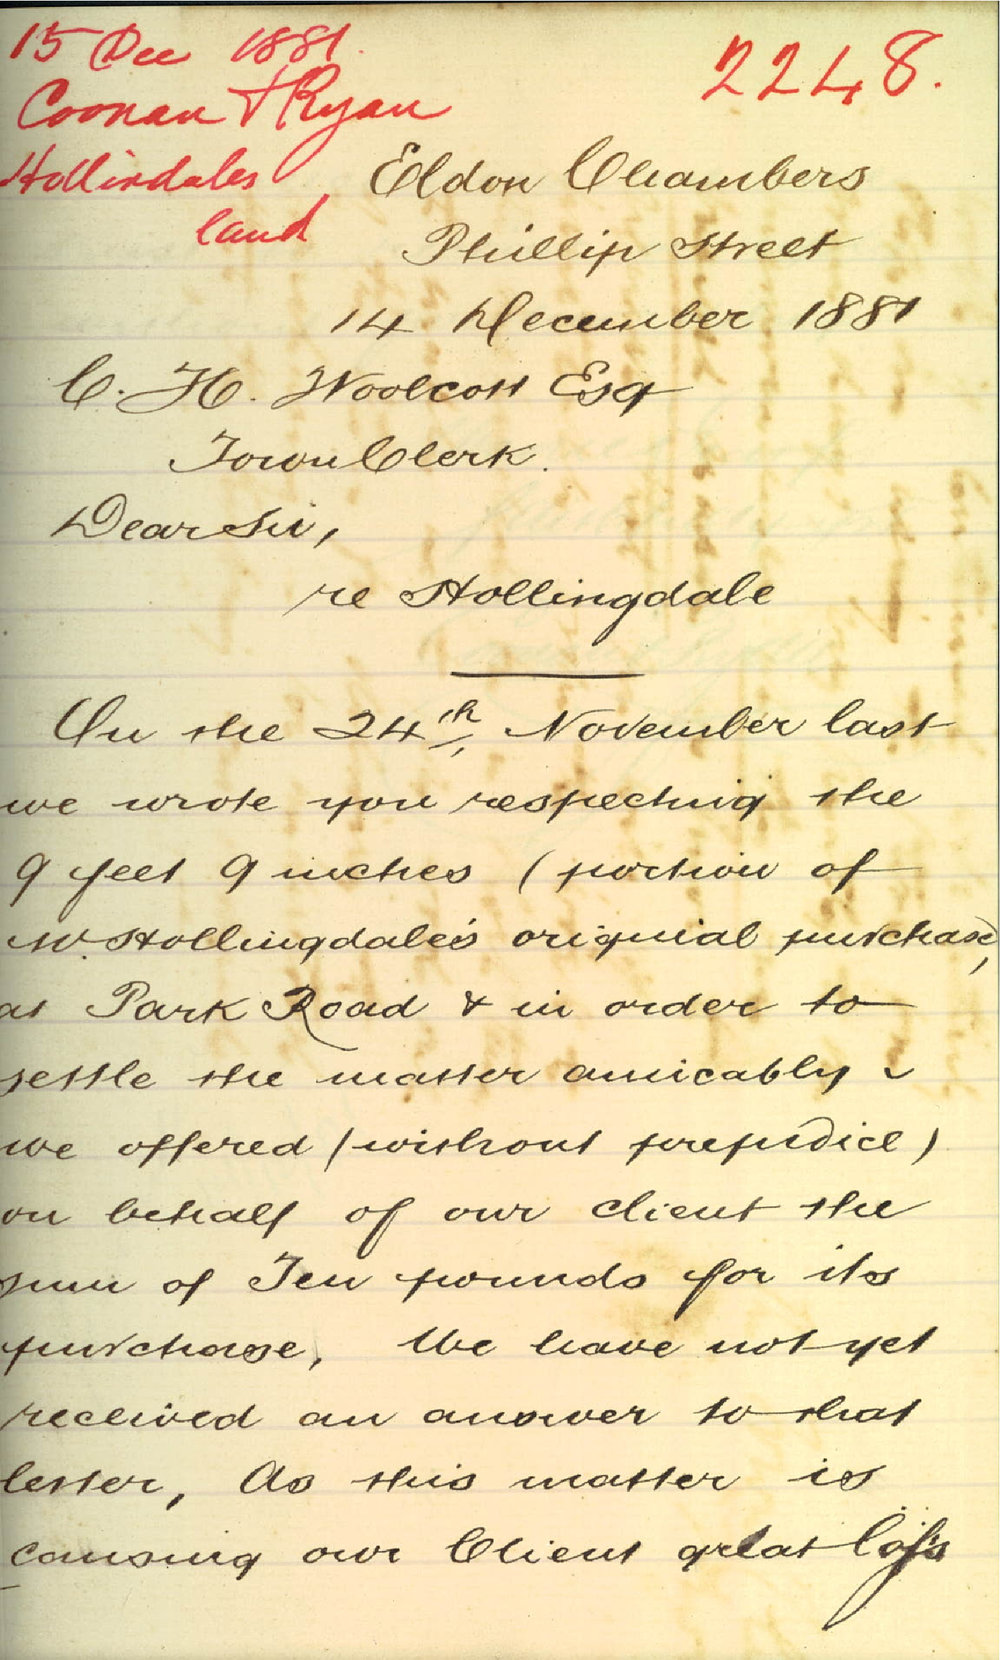 15 Dec 1881.
Coonan & Ryan
Hollindales
land
2248.
Eldon Chambers
Phillip Street
14 December 1881
C. H. Woolcott Esq
Town Clerk.
Dear Sir,
re Hollingdale
On the 24th, November last
we wrote you respecting the
9 feet 9 inches (portion of
Mr. Hollingdale's original purchase),
at Park Road & in order to
settle the matter amicably
we offered (without prejudice)
on behalf of our client the
sum of Ten pounds for its
purchase, We have not yet
received an answer to that
letter, As this matter is
causing our Client great loss